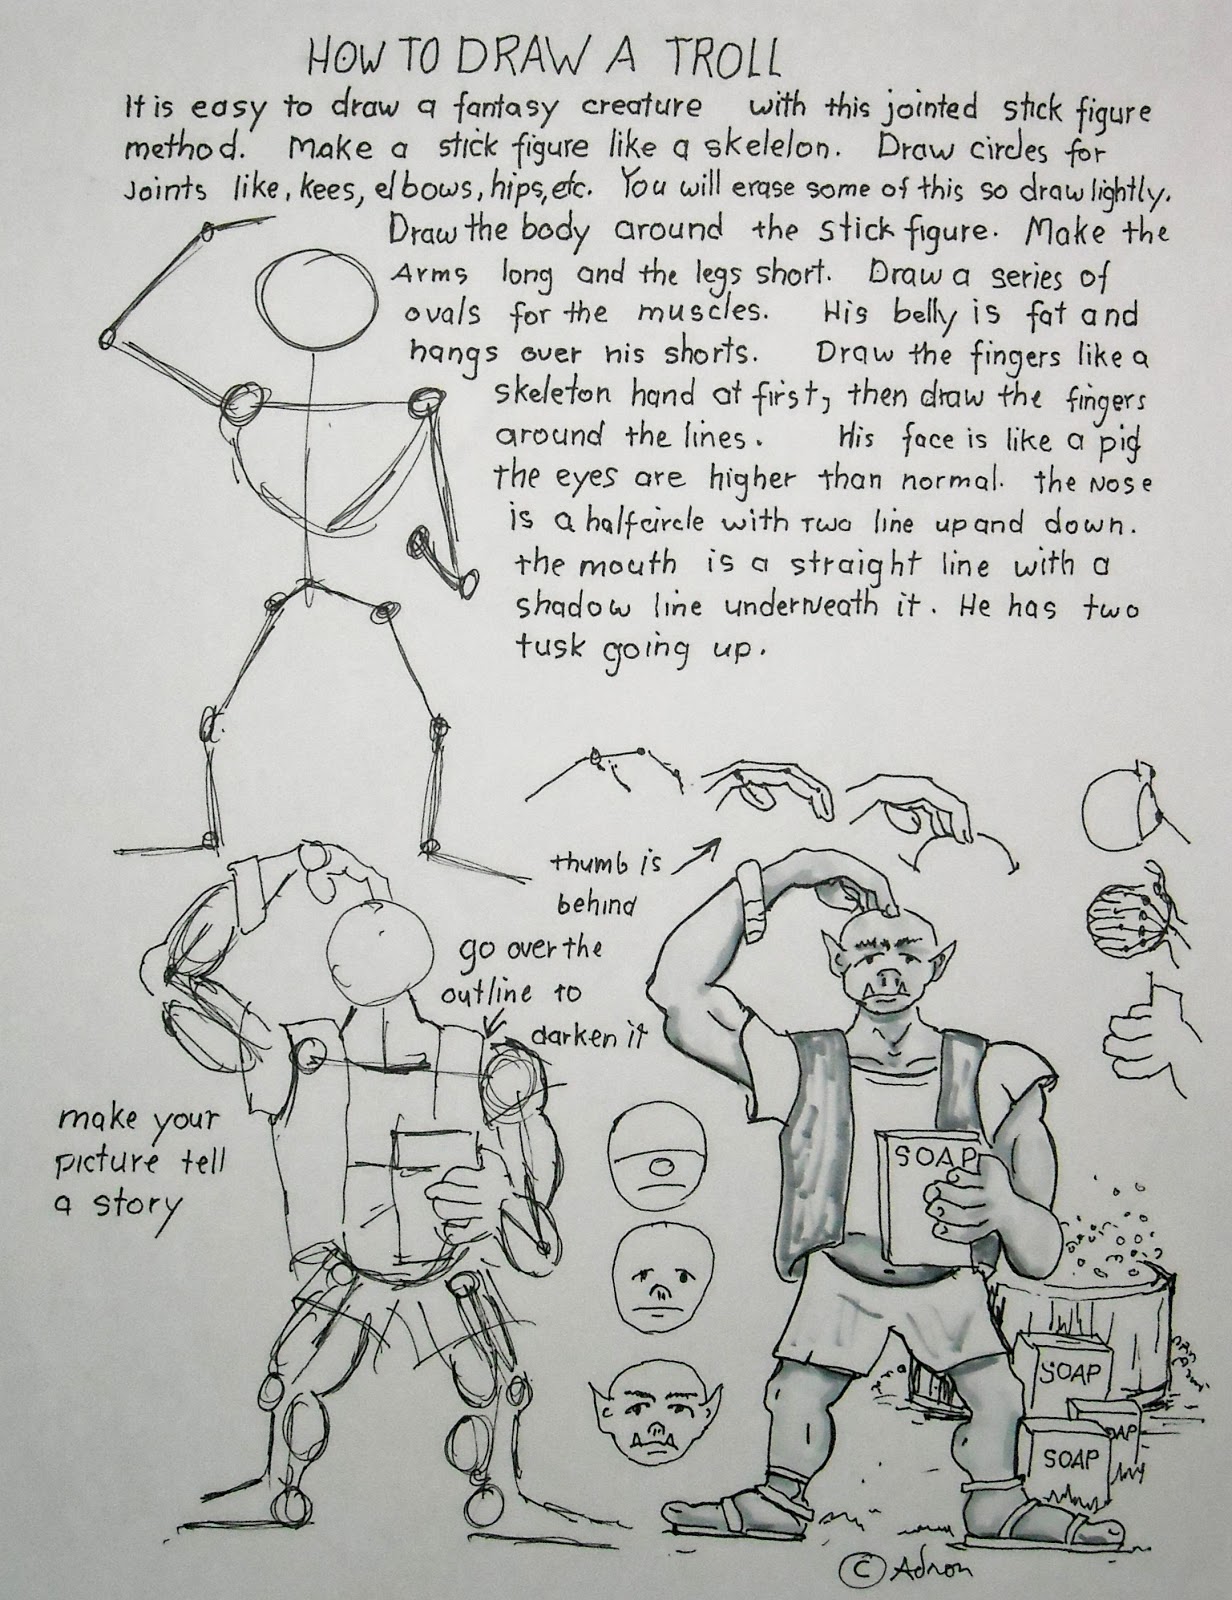 HOW TO DRAW A TROLL
It is easy to draw a fantasy creature with this jointed stick figure
method. Make a stick figure like a skelelon. Draw circles for
Joints like, kees, elbows, hips, etc. You will erase some of this so draw lightly.
Draw the body around the stick figure. Make the
Arms long and the legs short. Draw a series of
ovals for the muscles. His belly is fat and
hangs over his shorts. Draw the fingers like a
skeleton hand at first, then draw the fingers
around the lines. His face is like a pig
the eyes are higher than normal. the Nose
is a half circle with Two line up and down.
the mouth is a straight line with a
shadow line underneath it. He has two
tusk going up.
thumb is
behind
go over the
outline to
darken it
make your
picture tell
a story
SOAP
SOAP
OAP
SOAP
© Adron